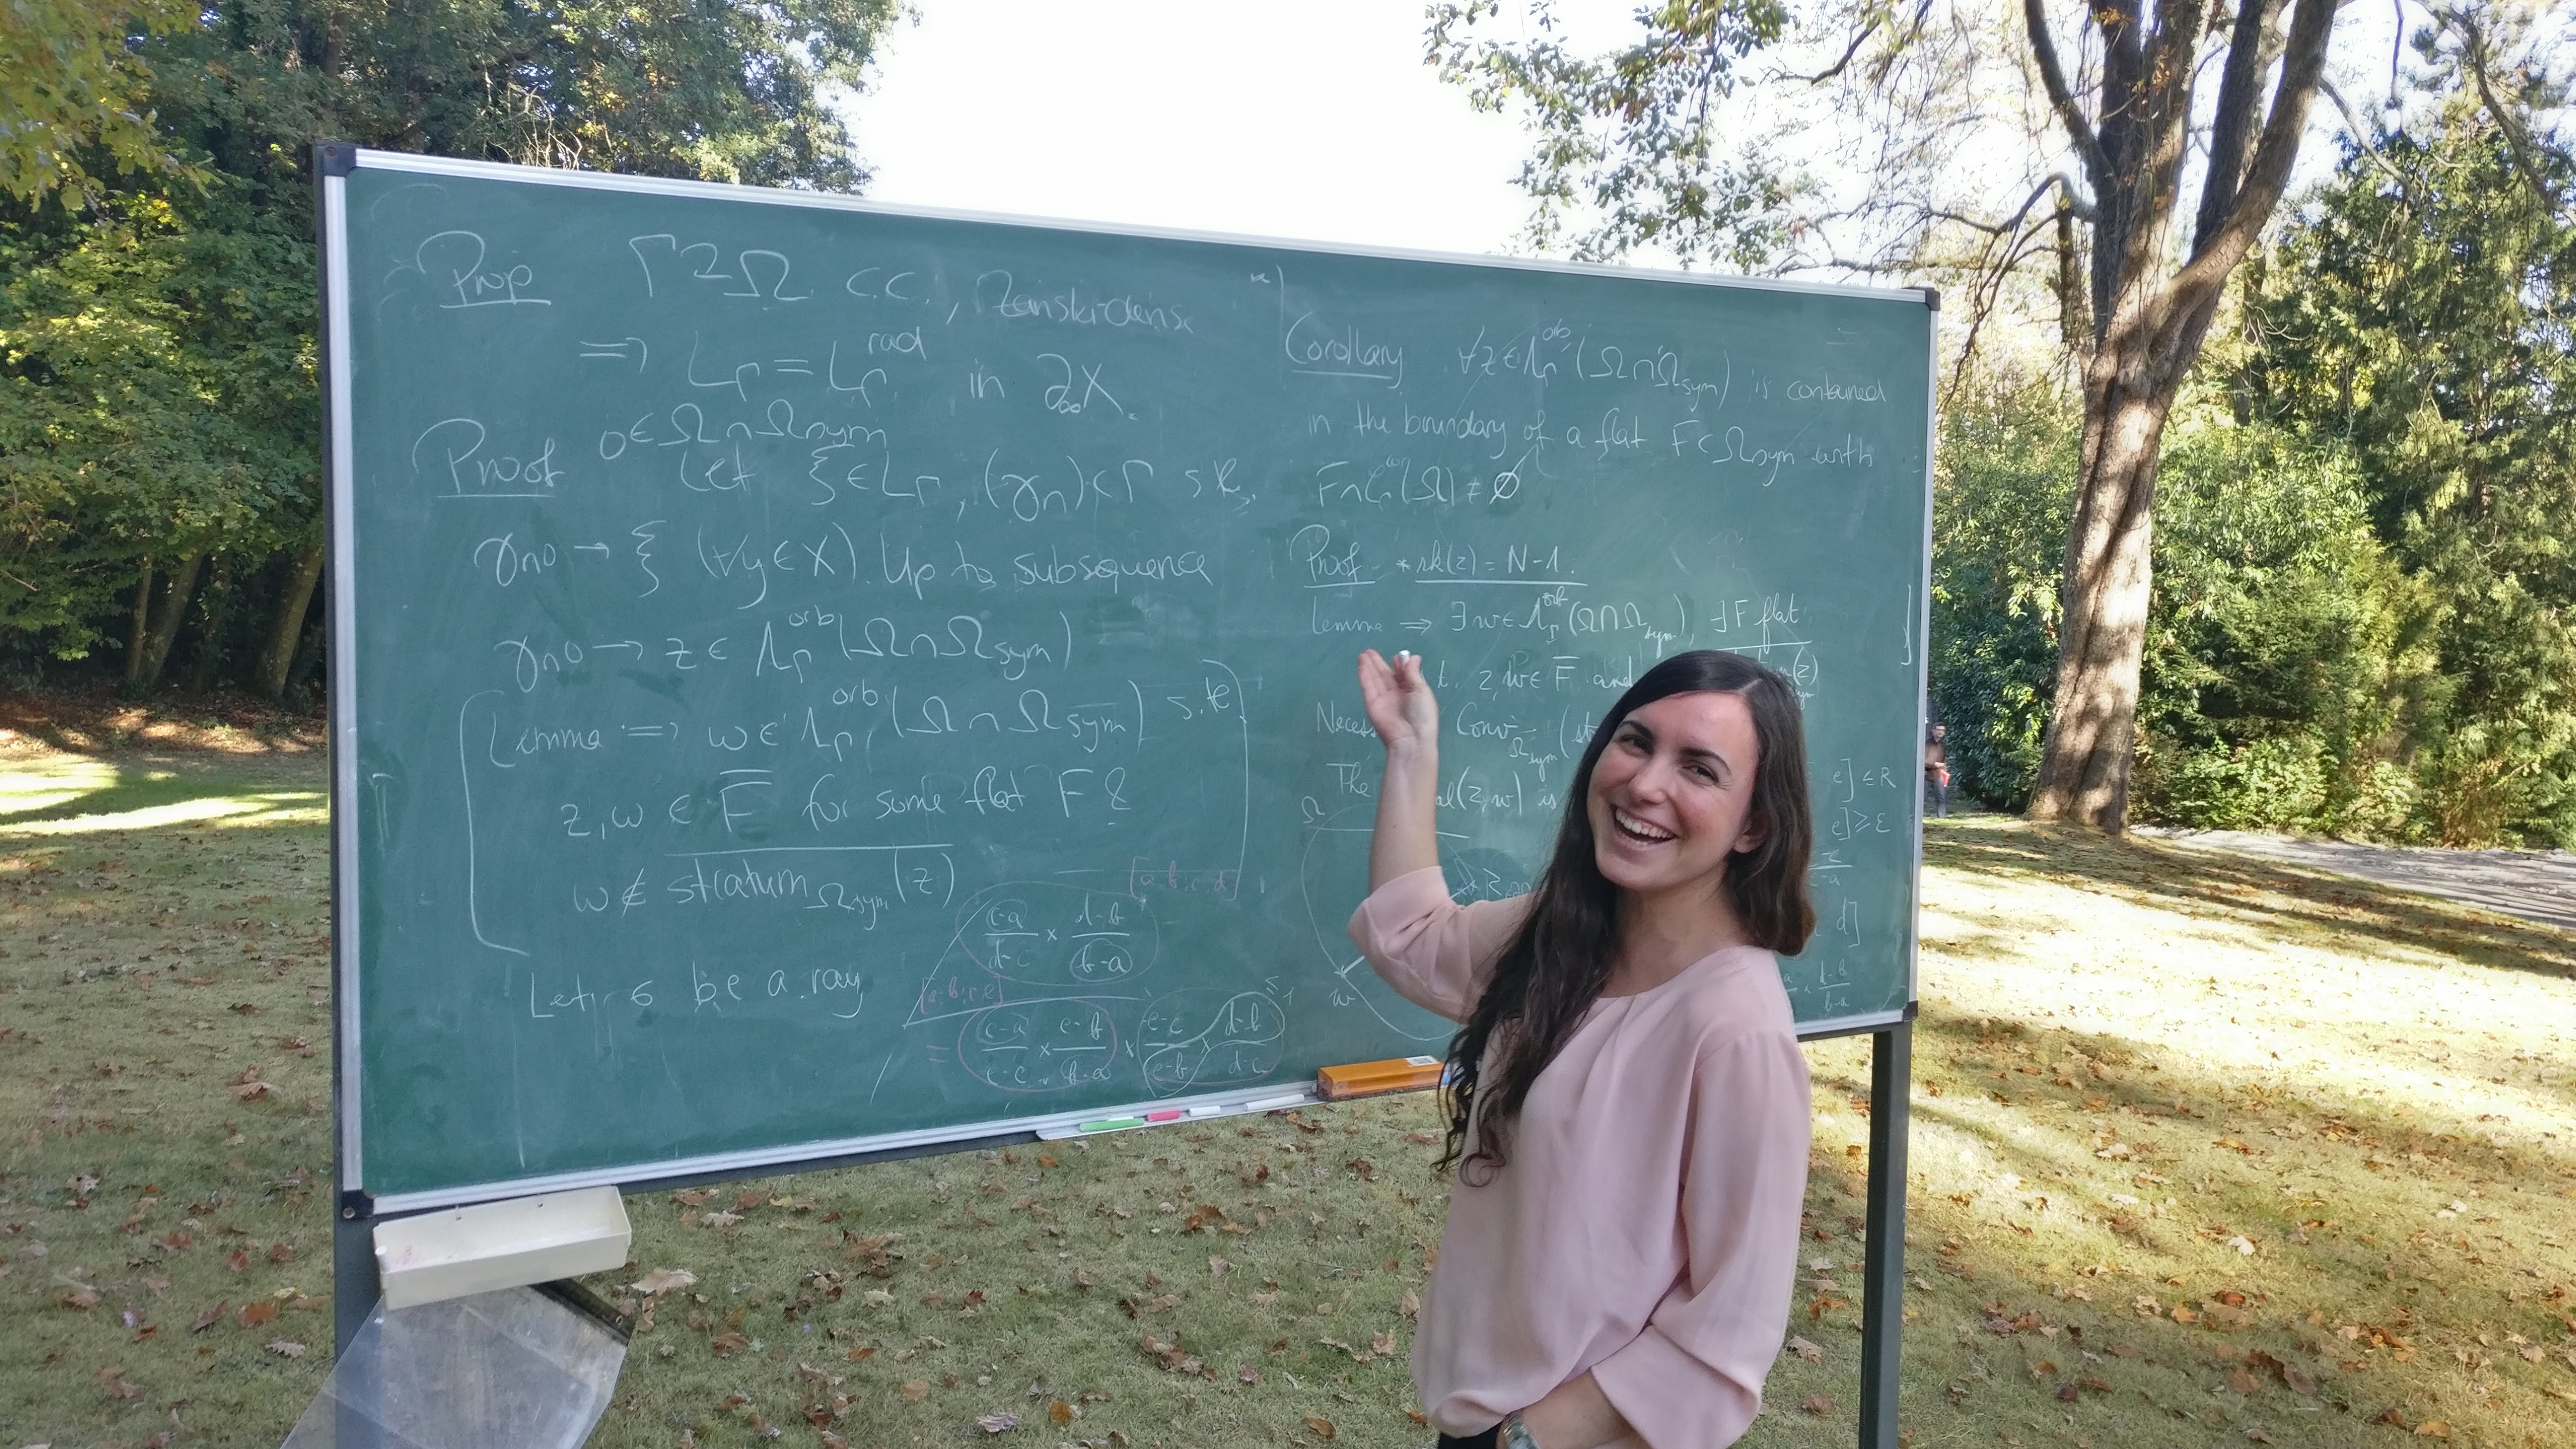 Prop Γ↷Ω c.c., Zariski-dense
⇒ L_Γ = L_Γ^rad in ∂_∞X.
Proof o∈Ω∩Ω_sym
Let ξ∈L_Γ, (γ_n)⊂Γ s.t.
γ_n o → ξ (∀y∈X). Up to subsequence
γ_n o → z ∈ Λ_Γ^orb(Ω∩Ω_sym)
Lemma ⇒ w∈Λ_Γ^orb(Ω∩Ω_sym) s.t.
z,w ∈ F̅ for some flat F &
w ∉ stratum_Ω_sym(z)
Let σ be a ray
[a:b:c:d]
(c-a)/(d-c) × (d-b)/(b-a)
[a:b:c:e]
= (c-a)/(e-c) × (e-b)/(b-a) × (e-c)/(e-b) × (d-b)/(d-c)
Corollary ∀z∈Λ_Γ^orb(Ω∩Ω_sym) is contained
in the boundary of a flat F⊂Ω_sym with
≠ ∅
Proof * rk(z) = N-1.
Lemma ⇒ ∃w∈Λ_Γ^orb(Ω∩Ω_sym), ∃F flat
t. z,w∈F̅ and (z)
Conv_Ω_sym(
The (z,w) is
Ω
w
e]∈R
e]≥ε
d]
d-b
b-a